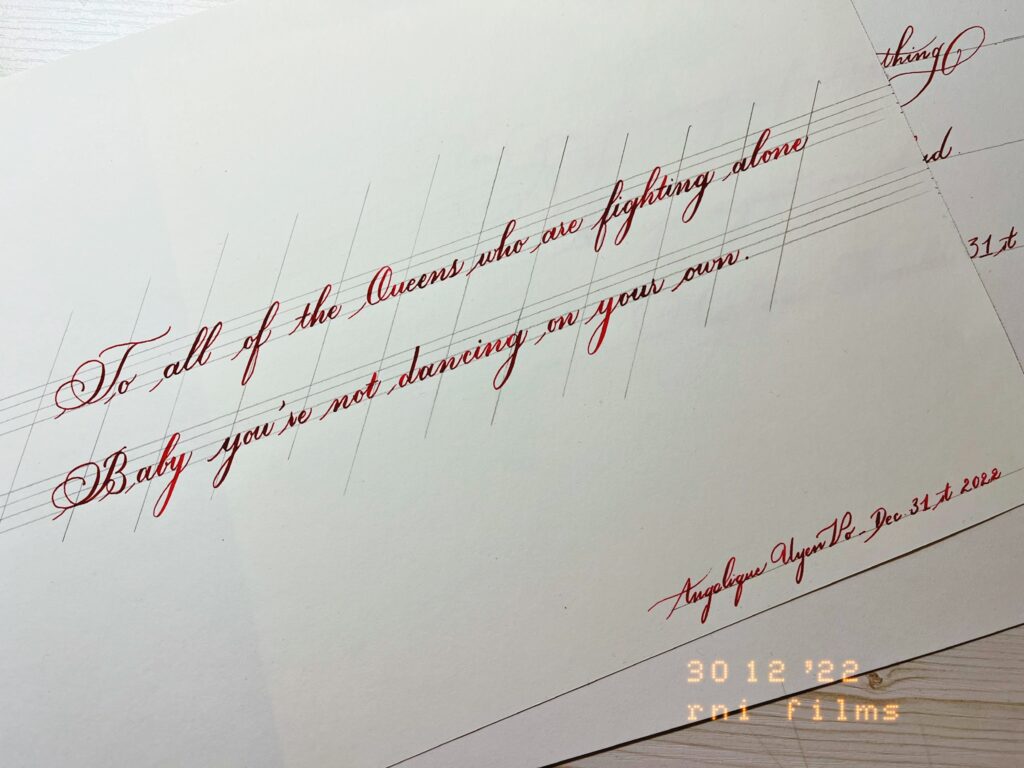 To all of the Queens who are fighting alone
Baby you're not dancing on your own.
Angelique Uyen Vo - Dec 31st 2022
thing
31st
30 12 '22
rni films